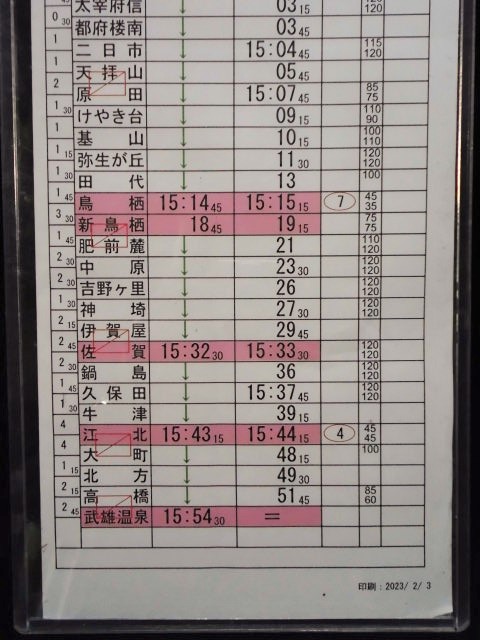 45 太宰府信 ↓ 03 15 120 120
0 30 都府楼南 ↓ 03 45
1 二日市 ↓ 15:04 45 115 120
1 天拝山 ↓ 05 45
2 原田 ↓ 15:07 45 85 75
1 30 けやき台 ↓ 09 15 110 90
1 基山 ↓ 10 15 100 110
1 15 弥生が丘 ↓ 11 30 120 120
1 30 田代 ↓ 13 100
1 45 鳥栖 15:14 45 15:15 15 7 45 35
3 30 新鳥栖 18 45 19 15 75 75
1 45 肥前麓 ↓ 21 110 120
2 30 中原 ↓ 23 30 120 120
2 30 吉野ヶ里 ↓ 26 120 120
1 30 神埼 ↓ 27 30 120 120
2 15 伊賀屋 ↓ 29 45
2 45 佐賀 15:32 30 15:33 30 120 120
2 30 鍋島 ↓ 36 120 120
1 45 久保田 ↓ 15:37 45 120 120
1 30 牛津 ↓ 39 15
4 江北 15:43 15 15:44 15 4 45 45
4 大町 ↓ 48 15 100
1 15 北方 ↓ 49 30
2 15 高橋 ↓ 51 45 85 60
2 45 武雄温泉 15:54 30 =
印刷：2023/ 2/ 3